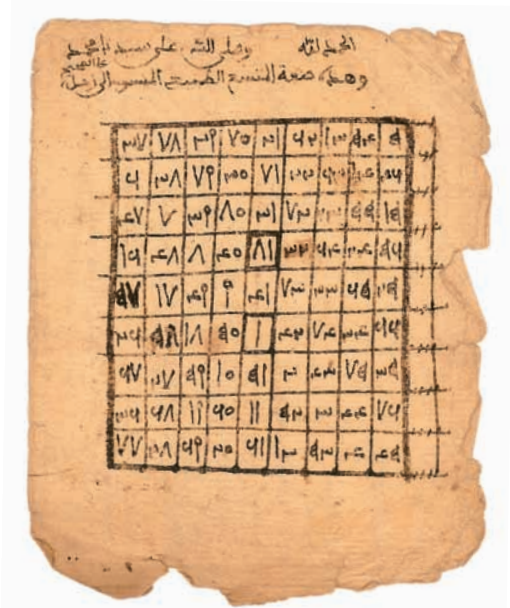 الحمد لله وصلى الله على سيدنا محمد
وهذه صفة المتسع الطبيعي المنسوب الى زحل
٣٧ ٧٨ ٢٩ ٧٠ ٢١ ٦٢ ١٣ ٥٤ ٥
٦ ٣٨ ٧٩ ٣٠ ٧١ ٢٢ ٦٣ ١٤ ٤٦
٤٧ ٧ ٣٩ ٨٠ ٣١ ٧٢ ٢٣ ٥٥ ١٥
١٦ ٤٨ ٨ ٤٠ ٨١ ٣٢ ٦٤ ٢٤ ٥٦
٥٧ ١٧ ٤٩ ٩ ٤١ ٧٣ ٣٣ ٦٥ ٢٥
٢٦ ٥٨ ١٨ ٥٠ ١ ٤٢ ٧٤ ٣٤ ٦٦
٦٧ ٢٧ ٥٩ ١٠ ٥١ ٢ ٤٣ ٧٥ ٣٥
٣٦ ٦٨ ١٩ ٦٠ ١١ ٥٢ ٣ ٤٤ ٧٦
٧٧ ٢٨ ٦٩ ٢٠ ٦١ ١٢ ٥٣ ٤ ٤٥